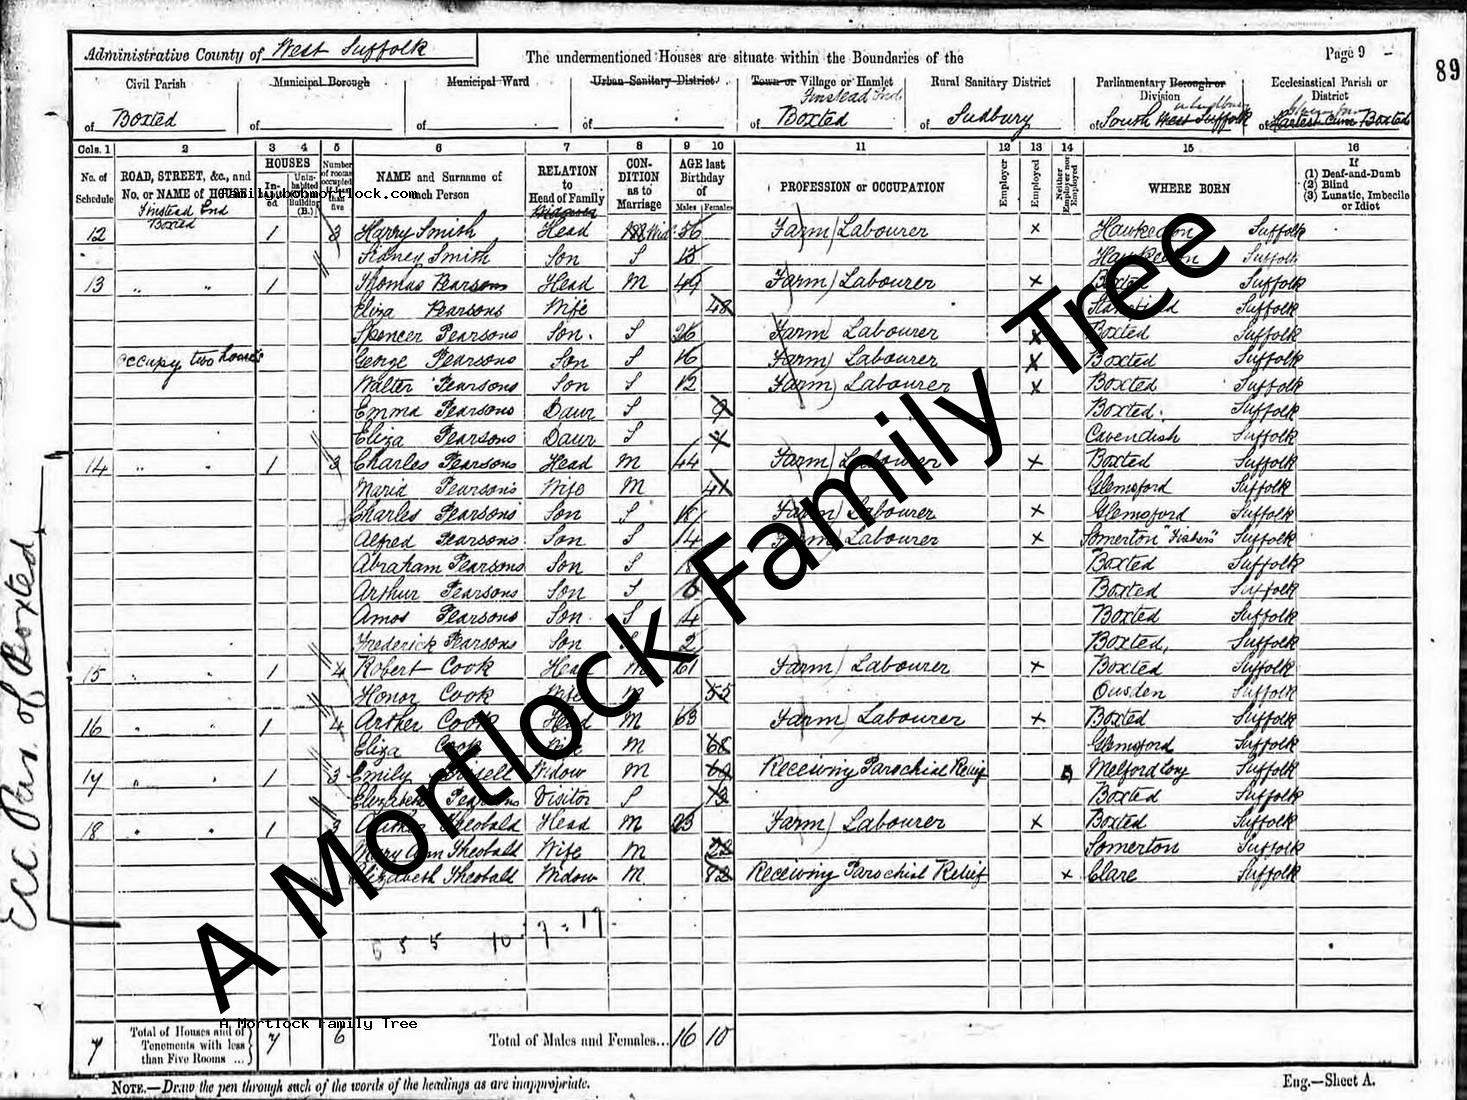 Administrative County of West Suffolk
The undermentioned Houses are situate within the Boundaries of the
Page 9
89
Civil Parish Municipal Borough Municipal Ward Urban Sanitary District Town or Village or Hamlet Rural Sanitary District Parliamentary Borough or Division Ecclesiastical Parish or District
Finstead End
of Boxted of of of of Boxted of Sudbury of South West Suffolk of Hartest cum Boxted
Cols. 1 2 3 4 5 6 7 8 9 10 11 12 13 14 15 16
No. of Schedule
ROAD, STREET, &c., and No. or NAME of HOUSE
HOUSES
Number of rooms occupied if less than five
NAME and Surname of each Person
RELATION to Head of Family
CONDITION as to Marriage
AGE last Birthday of
Males Females
PROFESSION or OCCUPATION
Employer
Employed
Neither Employer nor Employed
WHERE BORN
If (1) Deaf-and-Dumb (2) Blind (3) Lunatic, Imbecile or Idiot
Family.bobmortlock.com
12 Finstead End Boxted 1 3 Harry Smith Head Wid 56 Farm Labourer x Hawkedon Suffolk
Sidney Smith Son S 13 Hawkedon Suffolk
13 " " 1 Thomas Pearsons Head M 49 Farm Labourer x Boxted Suffolk
Eliza Pearsons Wife 48 Suffolk
Spencer Pearsons Son S 26 Farm Labourer x Boxted Suffolk
occupy two houses George Pearsons Son S 16 Farm Labourer x Boxted Suffolk
Walter Pearsons Son S 12 Farm Labourer x Boxted Suffolk
Emma Pearsons Daur S 9 Boxted Suffolk
Eliza Pearsons Daur S 4 Cavendish Suffolk
14 " " 1 3 Charles Pearsons Head M 44 Farm Labourer x Boxted Suffolk
Maria Pearsons Wife M 41 Glemsford Suffolk
Charles Pearsons Son S Farm Labourer x Glemsford Suffolk
Alfred Pearsons Son S 14 Farm Labourer x Somerton Suffolk
Abraham Pearsons Son S 8 Boxted Suffolk
Arthur Pearsons Son S 6 Boxted Suffolk
Amos Pearsons Son S 4 Boxted Suffolk
Frederick Pearsons Son S 2 Boxted Suffolk
15 " " 1 4 Robert Cook Head M 61 Farm Labourer x Boxted Suffolk
Honor Cook Wife M 55 Ousden Suffolk
16 " " 1 4 Arther Cook Head M 63 Farm Labourer x Boxted Suffolk
Eliza Cook Wife M 68 Glemsford Suffolk
17 " " 1 3 Emily Widow M Receiving Parochial Relief Melford Long Suffolk
Elizabeth Pearsons Visitor S 13 Boxted Suffolk
18 " " 1 3 Theobald Head M 23 Farm Labourer x Boxted Suffolk
Mary Ann Theobald Wife M 22 Somerton Suffolk
Elizabeth Theobald Widow M 72 Receiving Parochial Relief x Clare Suffolk
Ecc. Par. of Boxted
5 5 10 7 = 17
A Mortlock Family Tree
A Mortlock Family Tree
7 Total of Houses and of Tenements with less than Five Rooms ... 7 6 Total of Males and Females... 16 10
NOTE.—Draw the pen through such of the words of the headings as are inappropriate.
Eng.—Sheet A.